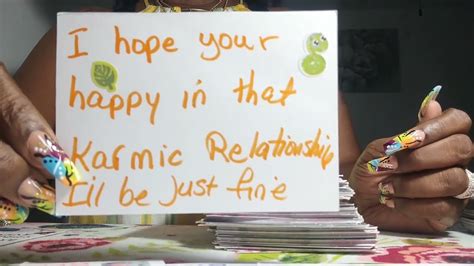 I hope your
happy in that
Karmic Relationship
I'll be just fine